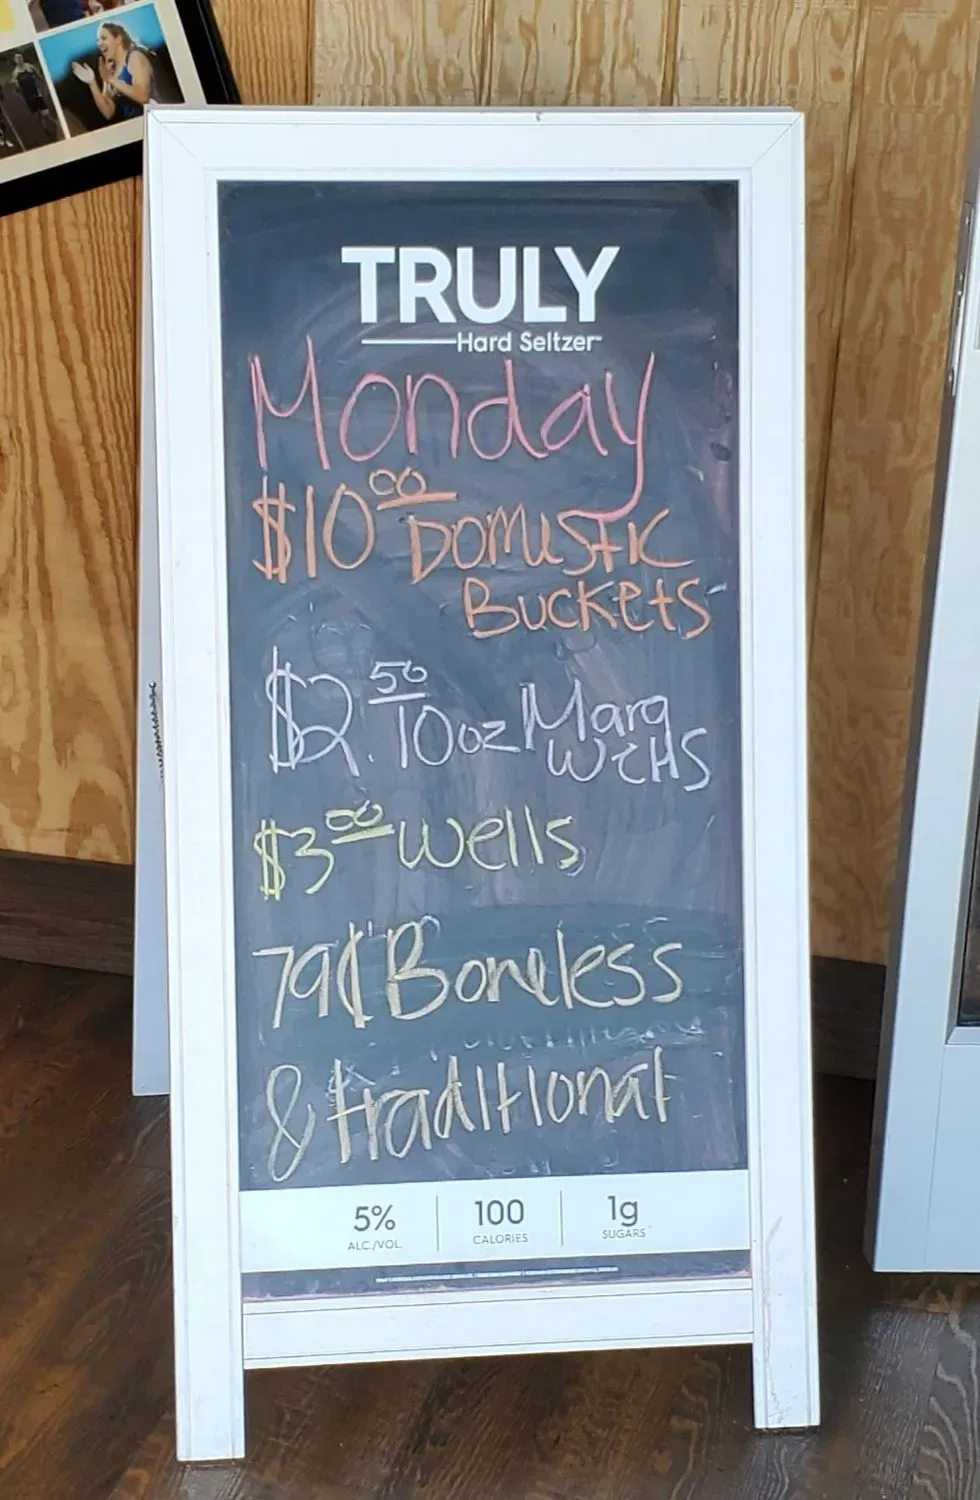 TRULY
Hard Seltzer
Monday
$10.00 Domestic
Buckets
$2.50 10oz Marg
$3.00 Wells
79¢ Boneless
& traditional
5% 100 1g
ALC./VOL. CALORIES SUGARS